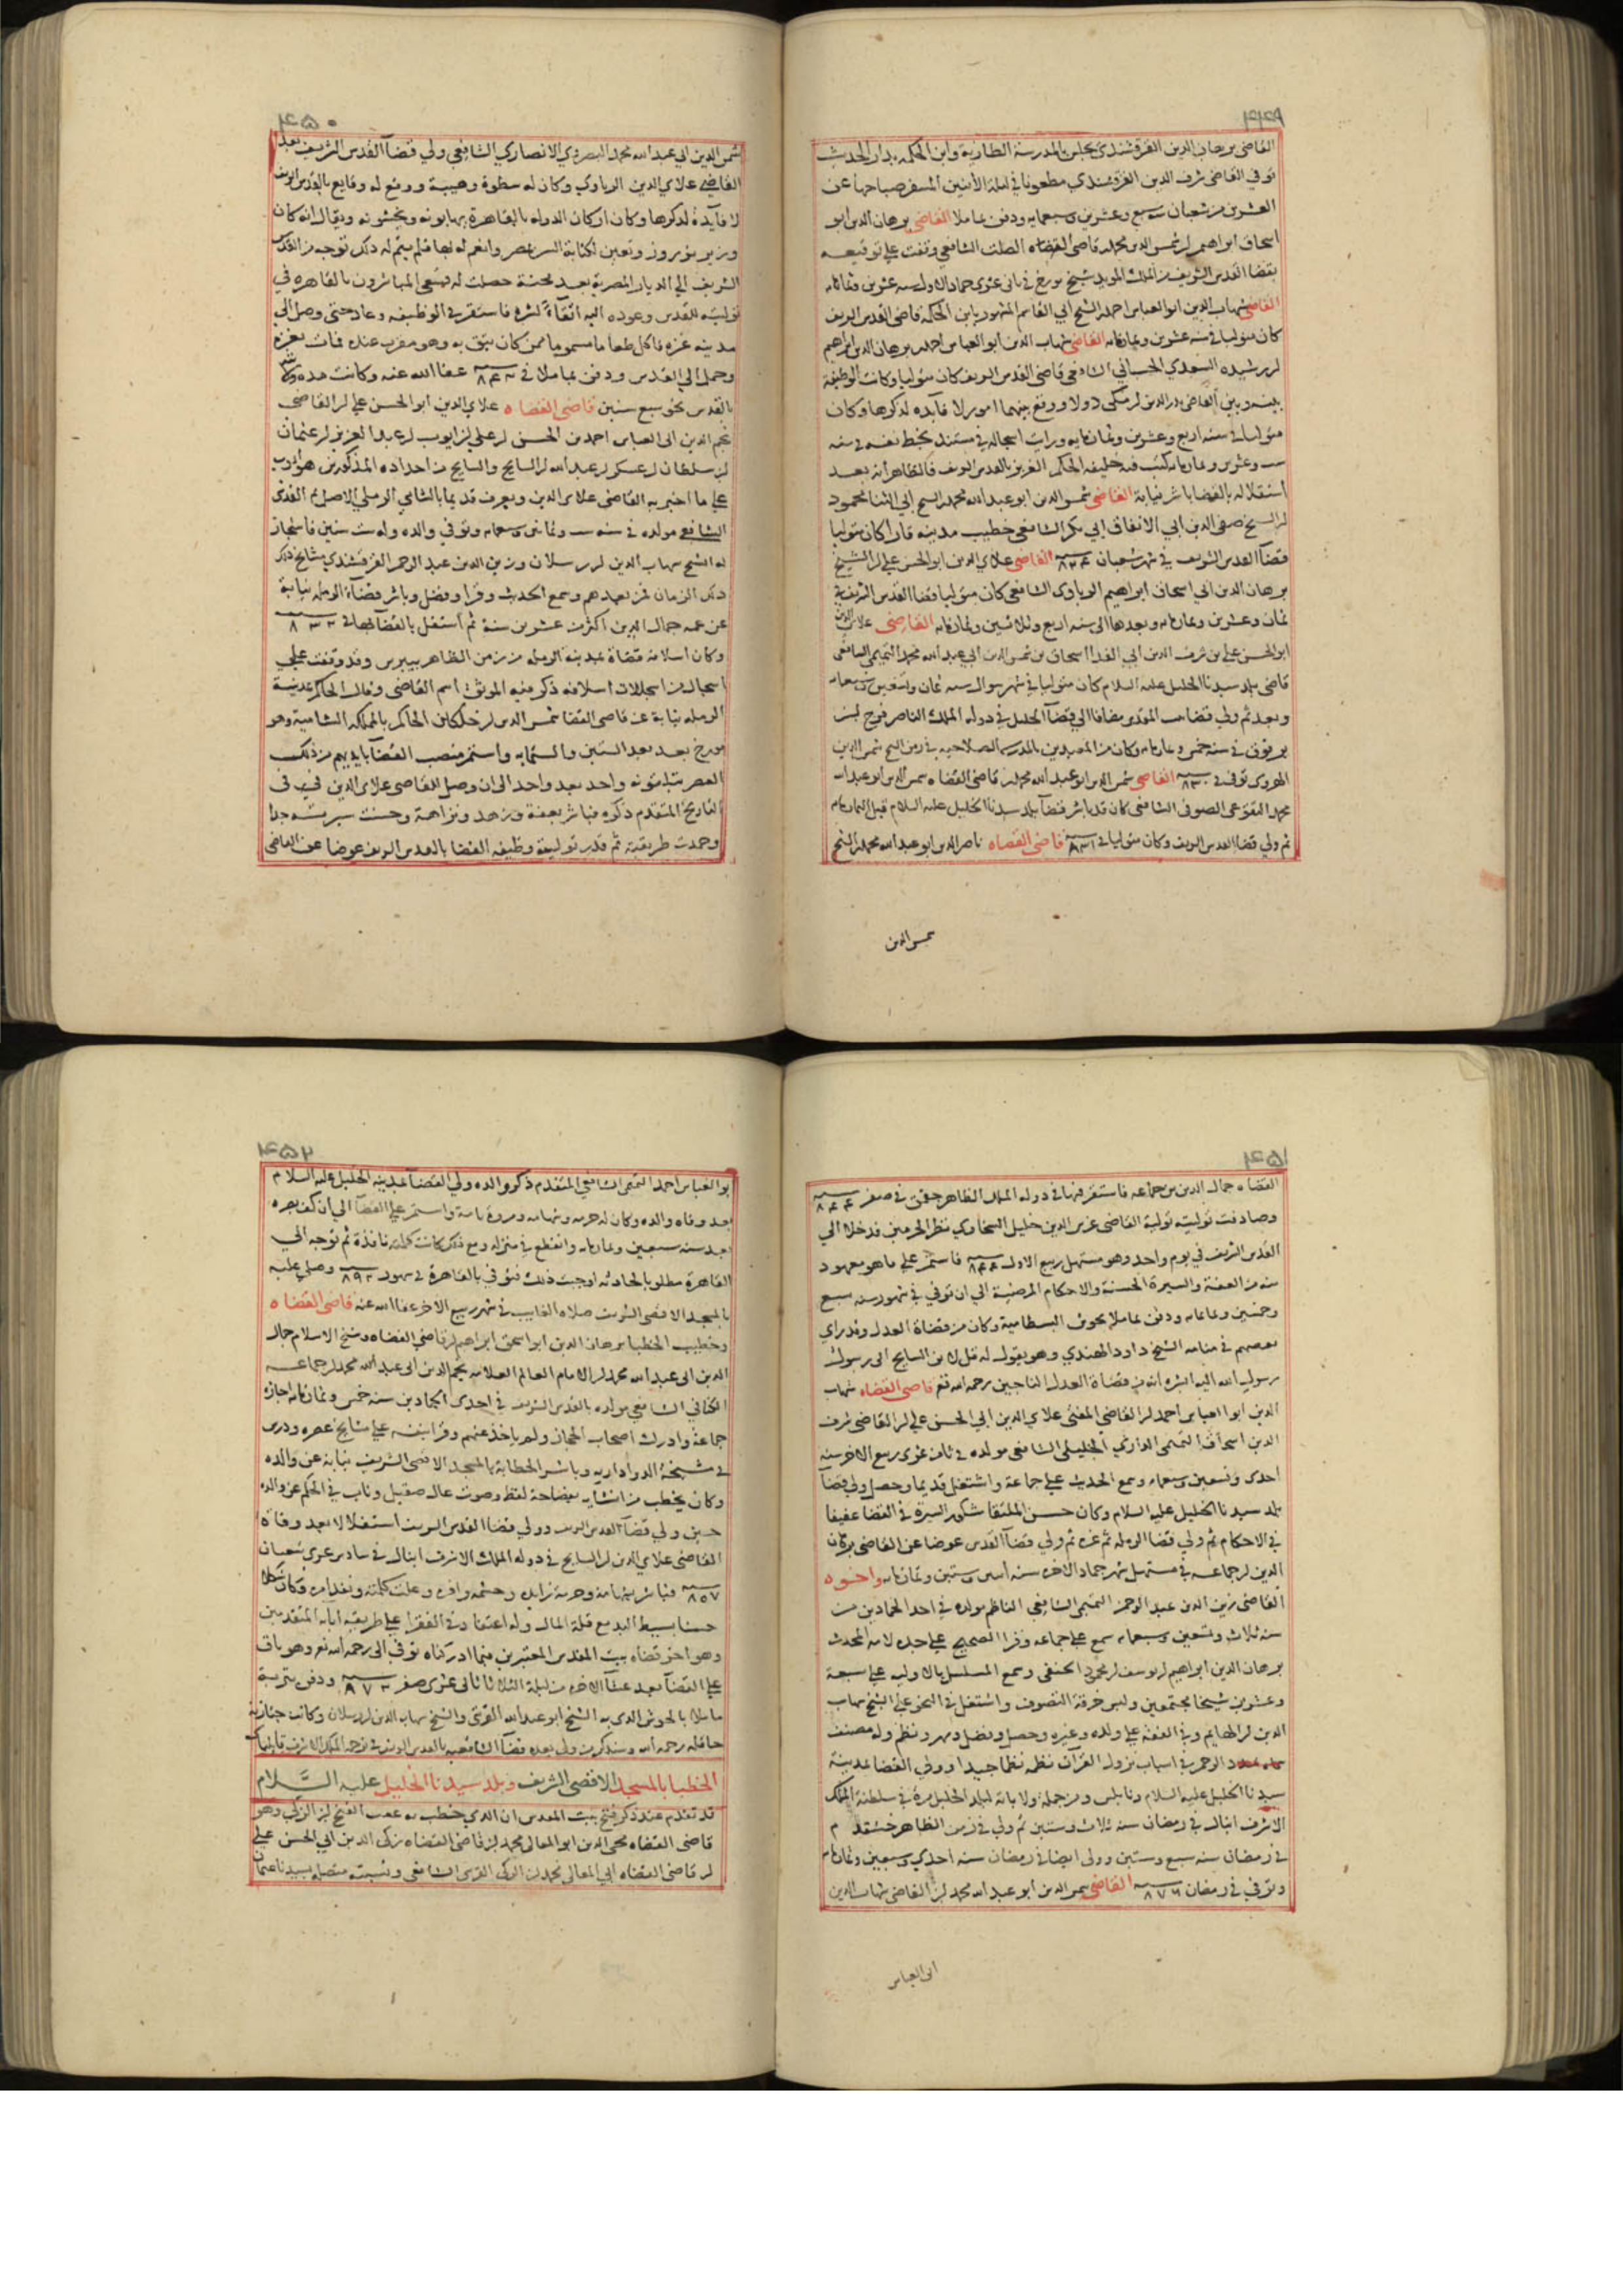 ٤٤٩
القاضي برهان الدين القرقشندي يجلس بالمدرسة الطازية وابن الحكمه بدار الحديث
توفي القاضي شرف الدين القرقشندي مطعونا في ليلة الاثنين المسفر صباحها عن
العشرين من شعبان سنه سبع وعشرين وسبعمايه ودفن بماملا القاضي برهان الدين ابو
اسحاق ابراهيم لر شمس الدين محمد قاضي القضاه الصلت الشافعي وقفت علي توقيعه
بقضا القدس الشريف من الملك المويد شيخ مورخ في ثاني عشري جماد الاول سنه عشرين وثمانمايه
القاضي شهاب الدين ابو العباس احمد لر الشيخ ابي القاسم المشهور بابن الحكمة قاضي القدس الشريف
كان متوليا في سنه عشرين وثمانمايه القاضي شهاب الدين ابو العباس احمد لر برهان الدين ابراهيم
لر رشيده السعدي الحسباني الشافعي قاضي القدس الشريف كان متوليا وكانت الوظيفة
بينه وبين القاضي بدر الدين لر مكي دولا ووقع بينهما امور لا فايده لذكرها وكان
متوليا في سنه اربع وعشرين وثمانمايه ورايت اسجاله في مستند بخط نفسه في سنه
ست وعشرين وثمانمايه كتب فيه خليفه الحكم العزيز بالقدس الشريف فالظاهر انه بعد
استقلاله بالقضا باشر نيابة القاضي شمس الدين ابو عبد الله محمد لر الشيخ ابي الثنا محمود
لر الشيخ صفي الدين ابي الانفاق ابي بكر الشافعي خطيب مدينه قارا كان متوليا
قضآ القدس الشريف في شهر شعبان سنه ٨٣٤ القاضي علاي الدين ابو الحسن علي لر الشيخ
برهان الدين ابي اسحاق ابراهيم الرباوي الشافعي كان متوليا قضا القدس الشريف في
ثمان وعشرين وثمانمايه وبعدها الي سنه اربع وثلاثين وثمانمايه القاضي علاي الدين
ابو الحسن علي بن شرف الدين ابي الفدا اسحاق بن شمس الدين ابي عبد الله محمد التميمي الشافعي
قاضي بلد سيدنا الخليل عليه السلام كان متوليا في شهر شوال سنه ثمان وتسعين وسبعمايه
وبعد ثم ولي قضا القدس مضافا الي قضآ الخليل في دولة الملك الناصر فرج لر
برقوق في سنه خمس وثمانمايه وكان من المعيدين بالمدرسه الصلاحيه في زمن الشيخ شمس الدين
الهروي توفي في سنه ٨٣٠ القاضي شمس الدين ابو عبد الله محمد لر قاضي القضاه شمس الدين ابو عبد الله
محمد الصوفي الشافعي كان قد باشر قضآ بلد سيدنا الخليل عليه السلام قبل الثمانمايه
ثم ولي قضا القدس الشريف وكان متوليا في سنه ٨٣١ قاضي القضاه ناصر الدين ابو عبد الله محمد لر الشيخ
شمس الدين
٤٥٠
شمس الدين ابي عبد الله محمد البصروي الانصاري الشافعي ولي قضآ القدس الشريف بعد
القاضي علاي الدين الرباوي وكان له سطوة وهيبة ووقع له وقايع بالقدس الشريف
لا فآيدة لذكرها وكان اركان الدوله بالقاهرة يهابونه ويخشونه ويقال انه كان
وزير نوروز وتعين لكتابة السر بمصر وانعم له بها فلم يتم له ذلك توجه من القدس
الشريف الي الديار المصرية بعد محنة حصلت له فسعي المباشرون بالقاهره في
توليته للقدس وعوده اليه اتقآء لشره فاستقر في الوظيفه وعاد حتي وصل الي
مدينه غزه فاكل طعاما مسموما ممن كان يثق به وهو مقرب عنده فمات بغزه
وحمل الي القدس ودفن بماملا في سنه ٨٤٠ عفا الله عنه وكانت مده ولايته
بالقدس نحو سبع سنين قاضي القضاه علاي الدين ابو الحسن علي لر القاضي
نجم الدين ابي العباس احمد بن الحسن لر علي لر ايوب لر عبد العزيز لر عثمان
لر سلطان لر عسكر لر عبد الله لر السايح والسايح من اجداده المذكورين هو ايوب
علي ما اخبر به القاضي علاي الدين ويعرف قديما بالشامي الرملي الاصل ثم القدسي
الشافعي مولده في سنه ست وثمانين وسبعمايه وتوفي والده وله ست سنين فاستجاز
له الشيخ شهاب الدين لر رسلان وزين الدين عبد الرحمن القرقشندي مشايخ ذلك
ذلك الزمان فمن بعدهم وسمع الحديث وقرا وفضل وباشر قضآء الرمله نيابة
عن عمه جمال الدين اكثر من عشرين سنة ثم استقل بالقضآ بها في سنه ٨٣٣
وكان اسلافه قضاة بمدينة الرمله من زمن الظاهر بيبرس وقد وقفت علي
اسجال من اسجالات اسلافه ذكر فيه الموثق اسم القاضي وقال الحاكم بمدينة
الرمله نيابة عن قاضي القضا شمس الدين لر خلكان الحاكم بالمملكه الشامية وهو
مورخ بعد بعد الستين والستمايه واستمر منصب القضآ بايديهم من ذلك
العصر يتلقونه واحد بعد واحد الي ان وصل للقاضي علاي الدين في
التاريخ المتقدم ذكره فباشر بعفة وزهد ونزاهة وحسنت سيرته جدا
وحمدت طريقته ثم قدر توليته وظيفه القضا بالقدس الشريف عوضا عن القاضي
٤٥١
القضاه جمال الدين بن جماعه فاستقر فيها في دوله الملك الظاهر جقمق في صفر سنه ٨٤٤
وصادفت توليته تولية القاضي غرس الدين خليل السخاوي نظر الحرمين فدخلا الي
القدس الشريف في يوم واحد وهو مستهل ربيع الاول سنه ٨٤٤ فاستمر علي ما هو معهود
منه من العفة والسيرة الحسنة والاحكام المرضية الي ان توفي في شهور سنه سبع
وخمسين وثمانمايه ودفن بماملا بحوش البسطامية وكان من قضاة العدل وقد راي
بعضهم في منامه الشيخ داود الهندي وهو يقول له قل لابن السايح الي رسول
رسول الله اليه ابشره انه من قضاة العدل الناجين رحمه الله تع قاضي القضاه شهاب
الدين ابو العباس احمد لر القاضي المفتي علاي الدين ابي الحسن علي لر القاضي شرف
الدين اسحاق التميمي الداري الخليلي الشافعي مولده في ثامن عشري ربيع الاخر سنه
احدي وتسعين وسبعمايه وسمع الحديث علي جماعة واشتغل قديما وحصل وولي قضآ
بلد سيدنا الخليل عليه السلام وكان حسن الملتقا شكور السيرة في القضا عفيفا
في الاحكام ثم ولي قضا الرمله ثم غزه ثم ولي قضآ القدس عوضا عن القاضي برهان
الدين لر جماعه في مستهل شهر جماد الاخر سنه اثنين وستين وثمانمايه واخوه
القاضي زين الدين عبد الرحمن التميمي الشافعي الناظم مولده في احد الجمادين من
سنه ثلاث وتسعين وسبعمايه سمع علي جماعه وقرا الصحيح علي جده لامه المحدث
برهان الدين ابراهيم لر يوسف لر محمود الحنفي وسمع المسلسل بالاوليه علي سبعة
وعشرين شيخا مجتمعين ولبس خرقة التصوف واشتغل في النحو علي الشيخ شهاب
الدين لر الهايم وفي الفقه علي والده وغيره وحصل وفضل ومهر ونظم وله مصنف
الرحمن في اسباب نزول القرآن نظمه نظما جيدا وولي القضا بمدينة
سيدنا الخليل عليه السلام ونابلس ومن جملة ولاياته لبلد الخليل مرة في سلطنة الملك
الاشرف اينال في رمضان سنه ثلاث وستين ثم ولي في زمن الظاهر خشقدم
في رمضان سنه سبع وستين وولي ايضا في رمضان سنه احدي وسبعين وثمانمايه
وتوفي في رمضان سنه ٨٧٦ القاضي شمس الدين ابو عبد الله محمد لر القاضي شهاب الدين
ابي العباس
٤٥٢
بو العباس احمد التميمي الشافعي المتقدم ذكر والده ولي القضآ بمدينه الخليل عليه السلام
بعد وفاه والده وكان له حرمه وشهامه ومروة تامة واستمر علي القضآ الي ان كف بصره
بعد سنه سبعين وثمانمايه وانقطع في منزله ومع ذلك كانت كلمته نافذة ثم توجه الي
القاهرة مطلوبا لحادثه اوجبت ذلك فتوفي بالقاهرة في شهور سنه ٨٩٣ وصلي عليه
بالمسجد الاقصي الشريف صلاه الغايب في شهر ربيع الاخر عفا الله عنه قاضي القضاه
وخطيب الخطبا برهان الدين ابو اسحق ابراهيم لر قاضي القضاه وشيخ الاسلام جمال
الدين ابي عبد الله محمد لر الامام العالم العلامه نجم الدين ابي عبد الله محمد لر جماعه
الكناني الشافعي مولده بالقدس الشريف في احدي الجمادين سنه خمس وثمانمايه اجازه
جماعة وادرك اصحاب الحجاز ولم ياخذ عنهم وقرا بنفسه علي مشايخ عصره ودرس
في مشيخة الدوادارية وباشر الخطابة بالمسجد الاقصي الشريف نيابة عن والده
وكان يخطب من انشايه بفصاحة لفظ وصوت عال صقيل وناب في الحكم عن والده
حين ولي قضآ القدس الشريف وولي قضا القدس الشريف استقلالا بعد وفاة
القاضي علاي الدين لر السايح في دوله الملك الاشرف اينال في سادس عشري شعبان
سنه ٨٥٧ فباشر بشهامة وحرمة زايده وحشمه وافره وعلت كلمته ونفذ امره وكان شكلا
حسنا بسيط اليد مع قلة المال وله اعتقاد في الفقرا علي طريقه ابايه المتقدمين
وهو اخر قضاه بيت المقدس المعتبرين فيما ادركناه توفي الي رحمه الله تع وهو باق
علي القضآ بعد عشآ الاخره من ليلة الثلاثا ثاني عشري صفر سنه ٨٧٢ ودفن بتربة
ماملا بالحوش الذي به الشيخ ابو عبد الله القرشي والشيخ شهاب الدين لر رسلان وكانت جنازته
حافله رحمه الله وسنذكر من ولي بعده قضآ الشافعيه بالقدس الشريف في ترجمه الملك الاشرف قايتباي
الخطبا بالمسجد الاقصي الشريف وبلد سيدنا الخليل عليه السلام
قد تقدم عند ذكر فتح بيت المقدس ان الذي خطب به عقب الفتح لر الزكي وهو
قاضي القضاه محيي الدين ابو المعالي محمد لر قاضي القضاه زكي الدين ابي الحسن علي
لر قاضي القضاه ابي المعالي محمد لر الزكي القرشي الشافعي ونسبته متصله بسيدنا عثمان